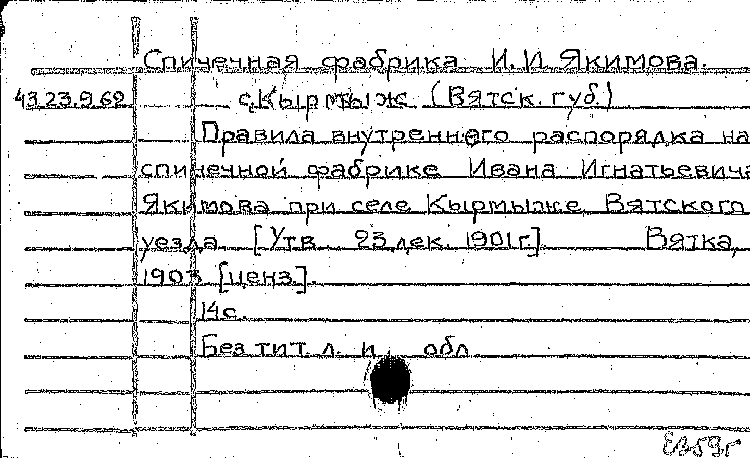 Спичечная фабрика И.И Якимова.
43.23.9.62 с.Кырмыж (Вятск. губ.)
Правила внутреннего распорядка на
спичечной фабрике Ивана Игнатьевича
Якимова при селе Кырмыже Вятского
уезда. [Утв. 23 дек. 1901г.] Вятка,
1903 [ценз].
14с.
Без тит. л. и обл